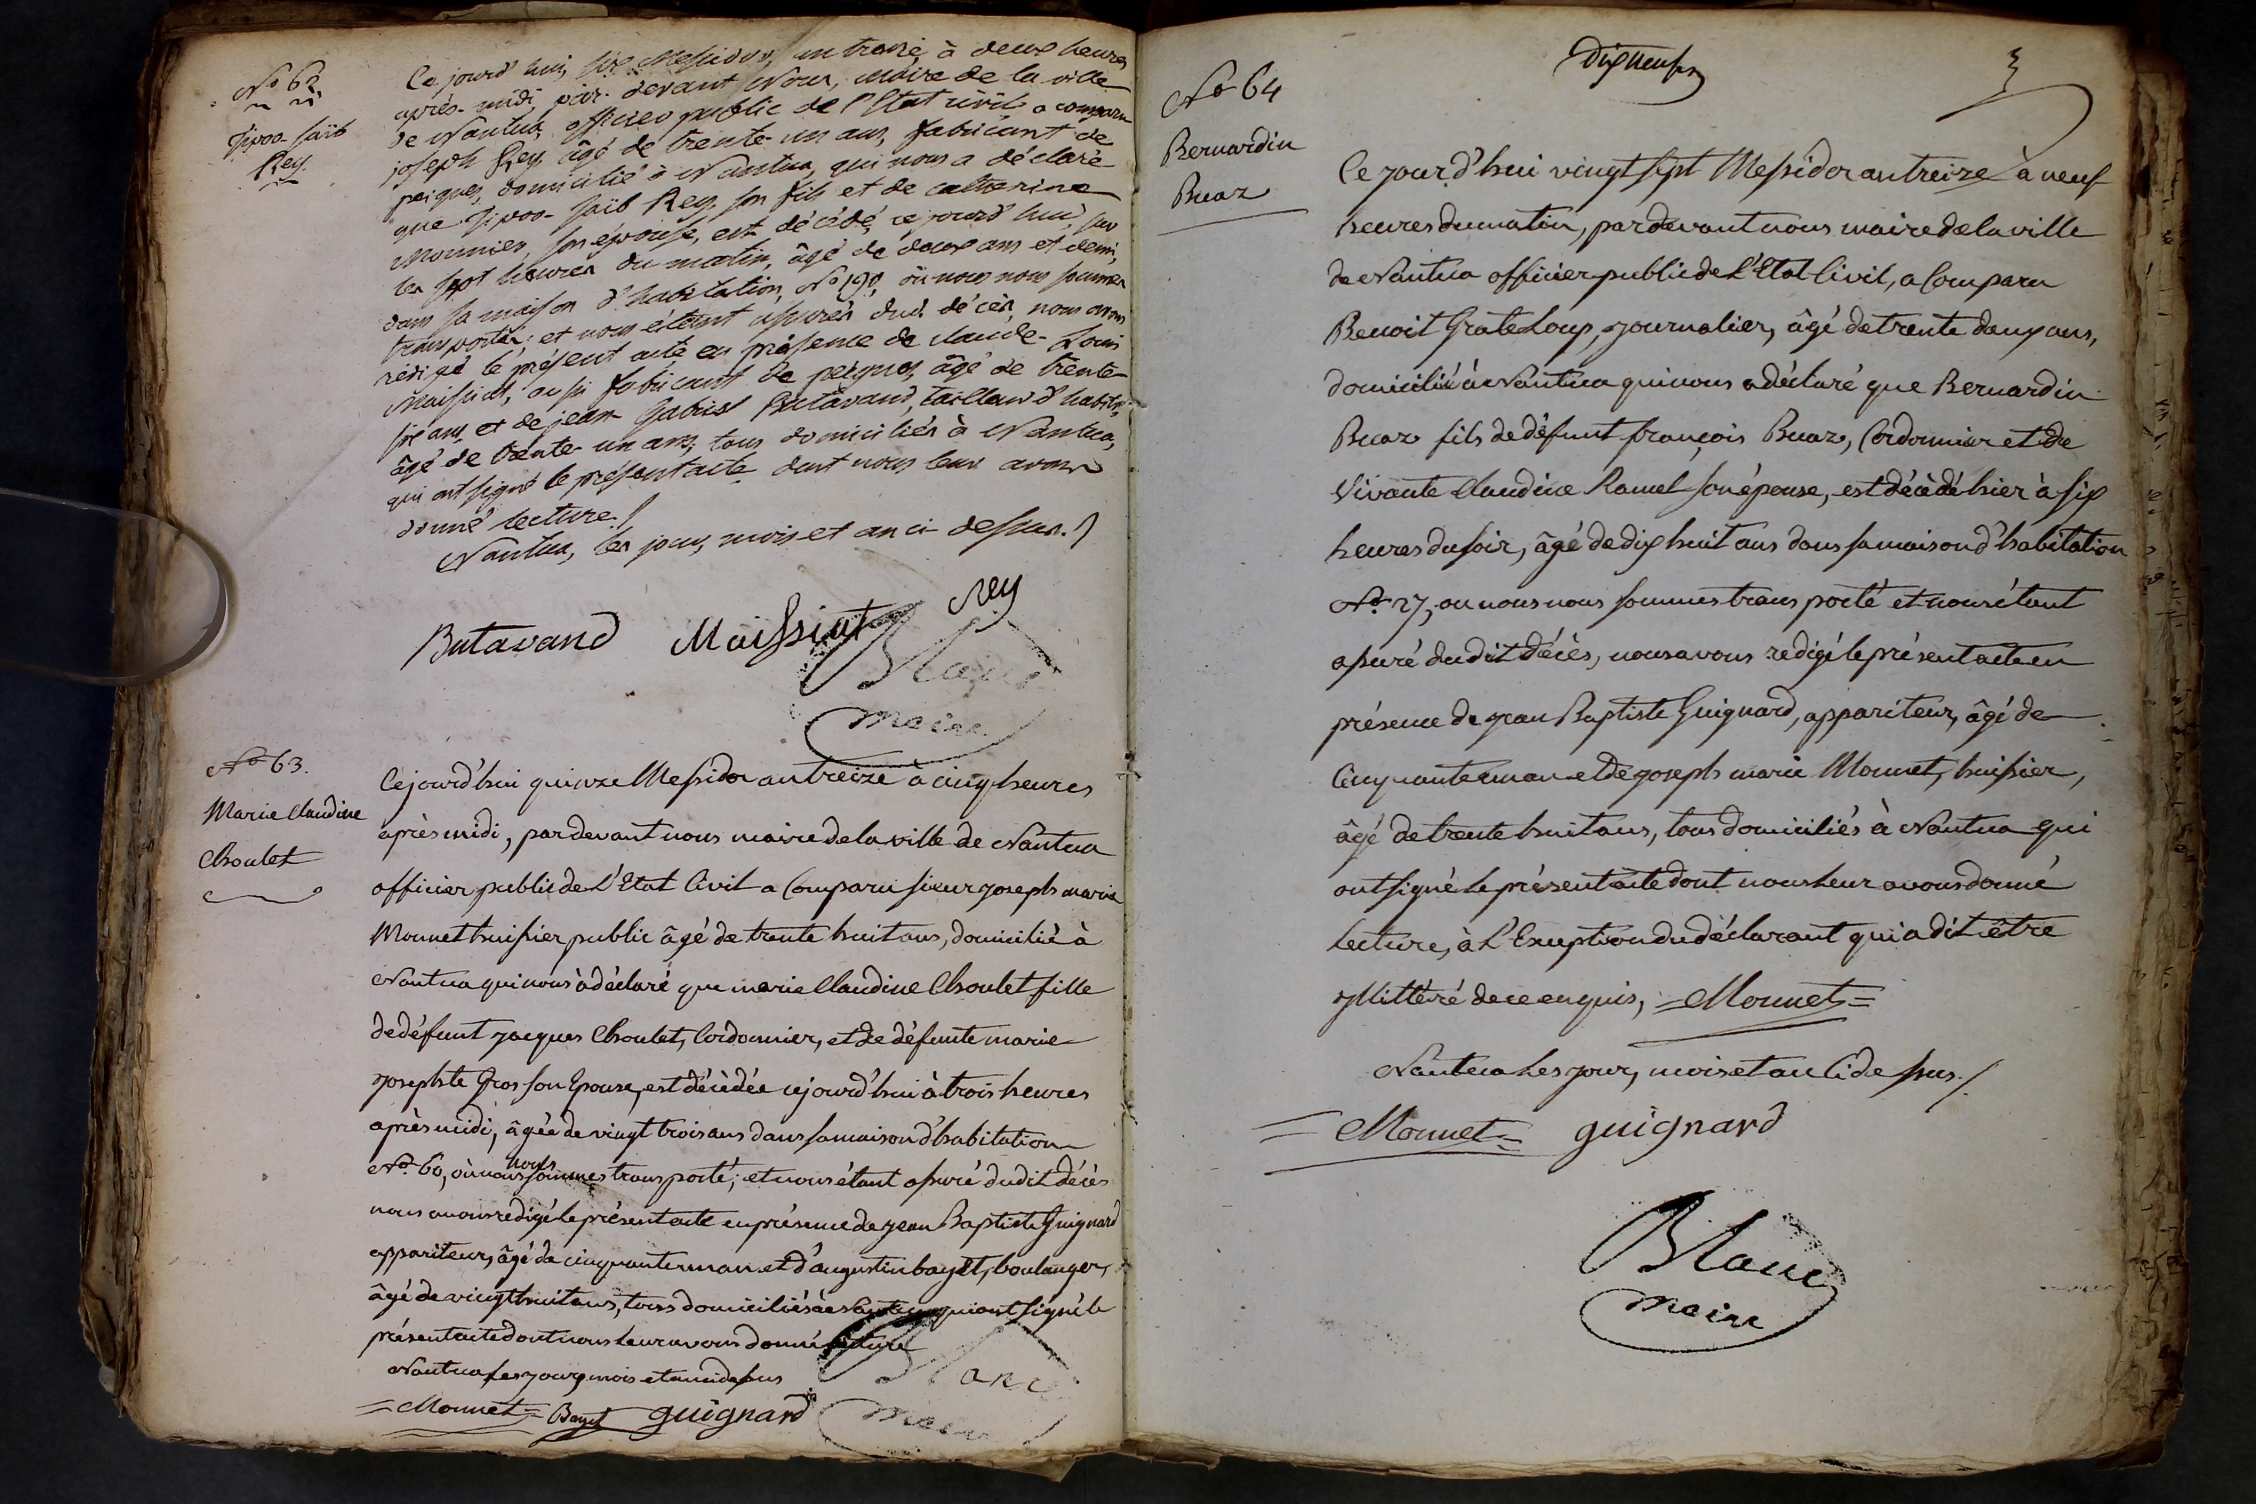 No 62
Tipoo-Saïb
Rey.
Ce jourd'hui, six Messidor, an treize, à deux heures
après-midi, par-devant Nous, maire de la ville
de Nantua, officier public de l'Etat civil, a comparu
joseph Rey, âgé de trente-un ans, fabricant de
peignes, domicilié à Nantua, qui nous a déclaré
que Tipoo-Saïb Rey, son fils et de catherine
Monnier, son épouse, est décédé, ce jourd'hui, sur
les sept heures du matin, âgé de deux ans et demi,
dans sa maison d'habitation, No 190, où nous nous sommes
transportés; et nous étant assurés dud. décès, nous avons
rédigé le présent acte en présence de claude-Louis
Maissiat, aussi fabricant de peignes, âgé de trente-
six ans, et de jean Gabriel Butavand, tailleur d'habits,
âgé de trente-un ans; tous domiciliés à Nantua,
qui ont signé le présent acte dont nous leur avons
donné lecture./
Nantua, les jour, mois et an ci-dessus./
Rey
Butavand Maissiat
Blanc
maire
No 63.
Marie Claudine
Choulet
Cejourd'hui quinze Messidor an treize à cinq heures
après midi, pardevant nous maire de la ville de Nantua
officier public de L'Etat Civil a Comparu sieur joseph marie
Monnet huissier public âgé de trente huit ans, domicilié à
Nantua qui nous à déclaré que marie Claudine Choulet fille
de défunt jacques Choulet, Cordonnier, et de défunte marie
josephte Gros son Epouse, est décédée cejourd'hui à trois heures
après midi, âgée de vingt trois ans dans sa maison d'habitation
No 60, où nous nous sommes transporté; et nous étant assuré dudit décès
nous avons redigé le présent acte en présence de jean Baptiste Guignard
appariteur, âgé de cinquante un an et d'augustin bayet, boulanger,
âgé de vingt huit ans, tous domiciliés à Nantua qui ont signé le
présent acte dont nous leur avons donné lecture
Nantua les jour, mois et an cidessus
Monnet Bayet guignard
Blanc
maire
Dix neuf
No 64
Bernardin
Buaz
Ce jourd'hui vingt sept Messidor an treize à neuf
heures du matin, pardevant nous maire de la ville
de Nantua officier public de L'Etat Civil, a Comparu
Benoit Grateloup, journalier, âgé de trente deux ans,
domicilié à Nantua qui nous a déclaré que Bernardin
Buaz fils de défunt françois Buaz, Cordonnier et de
Vivante Claudine Ramel son épouse, est décèdé hier à six
heures du soir, âgé de dix huit ans dans sa maison d'habitation
No 27, ou nous nous sommes transporté et nous étant
assuré dudit décès, nous avons redigé le présent acte en
présence de jean Baptiste Guignard, appariteur, âgé de
Cinquante un an et de joseph marie Monnet, huissier,
âgé de trente huit ans, tous domiciliés à Nantua qui
ont signé le présent acte dont nous leur avons donné
lecture, à L'Exception du déclarant qui a dit être
jllittéré de ce enquis, =Monnet=
Nantua les jour, mois et an Cidessus./.
=Monnet= guignard
Blanc
maire